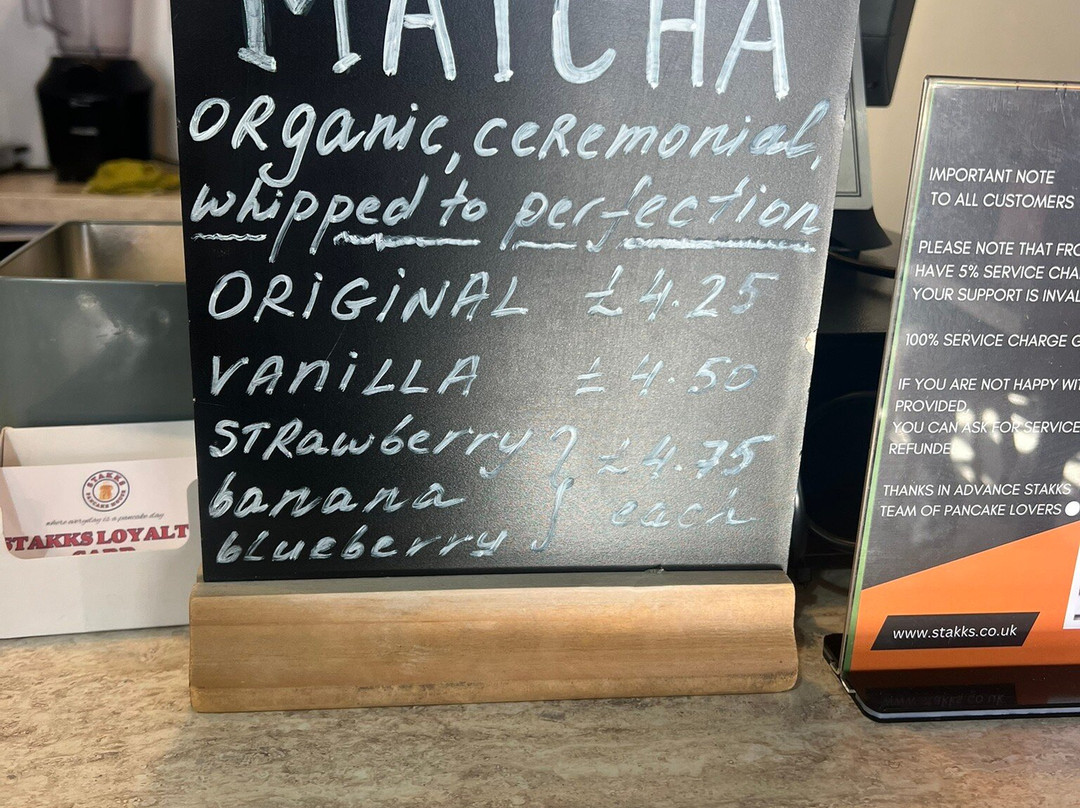 MATCHA
ORganic, ceRemonial,
whipped to perfection
ORiGiNAL £4.25
VANiLLA £4.50
STRawberry } £4.75
banana } each
bLueberry
STAKKS
PANCAKE HOUSE
where everyday is a pancake day
STAKKS LOYALT
CARD
IMPORTANT NOTE
TO ALL CUSTOMERS
PLEASE NOTE THAT FRO
HAVE 5% SERVICE CHA
YOUR SUPPORT IS INVAL
100% SERVICE CHARGE G
IF YOU ARE NOT HAPPY WIT
PROVIDED,
YOU CAN ASK FOR SERVICE
REFUNDE
THANKS IN ADVANCE STAKKS
TEAM OF PANCAKE LOVERS
www.stakks.co.uk